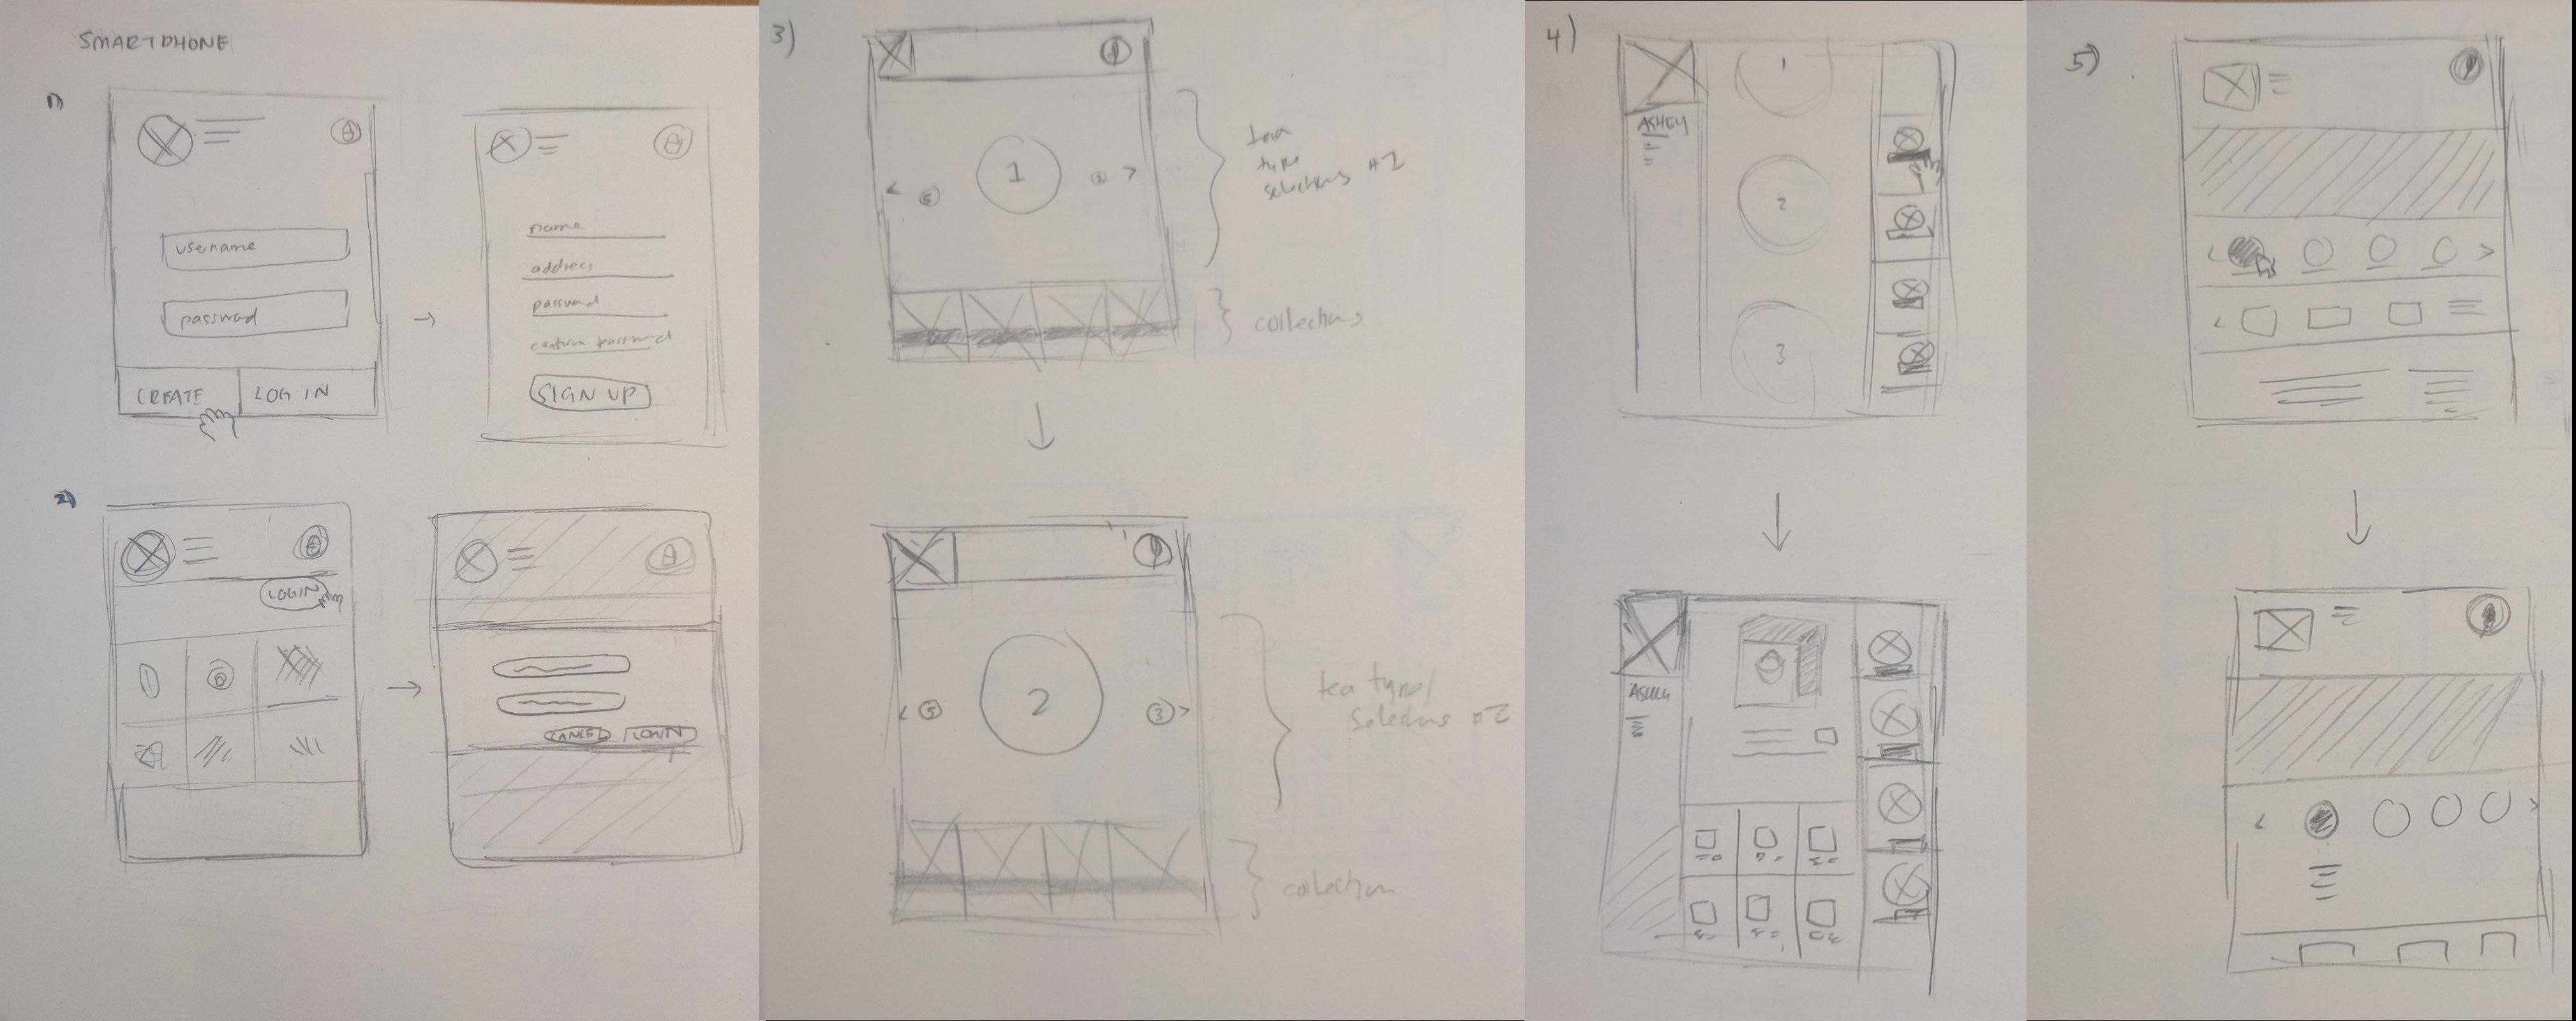 SMARTPHONE
1)
username
password
CREATE
LOG IN
→
name
address
password
confirm password
SIGN UP
2)
LOGIN
→
CANCEL
LOGIN
3)
< 5
1
2 >
tea
type
selections #1
collections
↓
< 5
2
3 >
tea type/
selections #2
collection
4)
1
2
3
ASHLY
↓
ASHLY
5)
<
>
<
↓
<
>